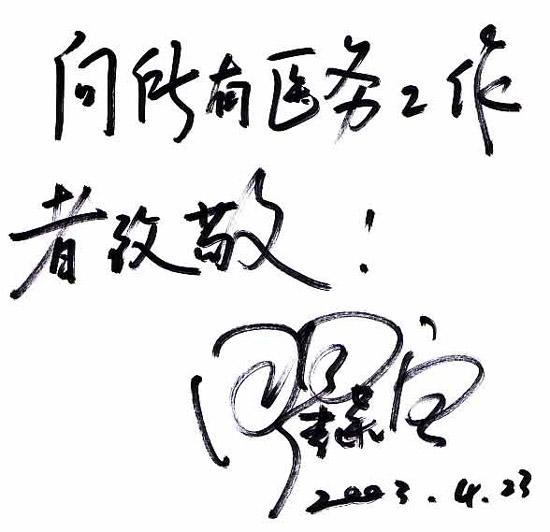 向所有医务工作
者致敬！
2003.4.23